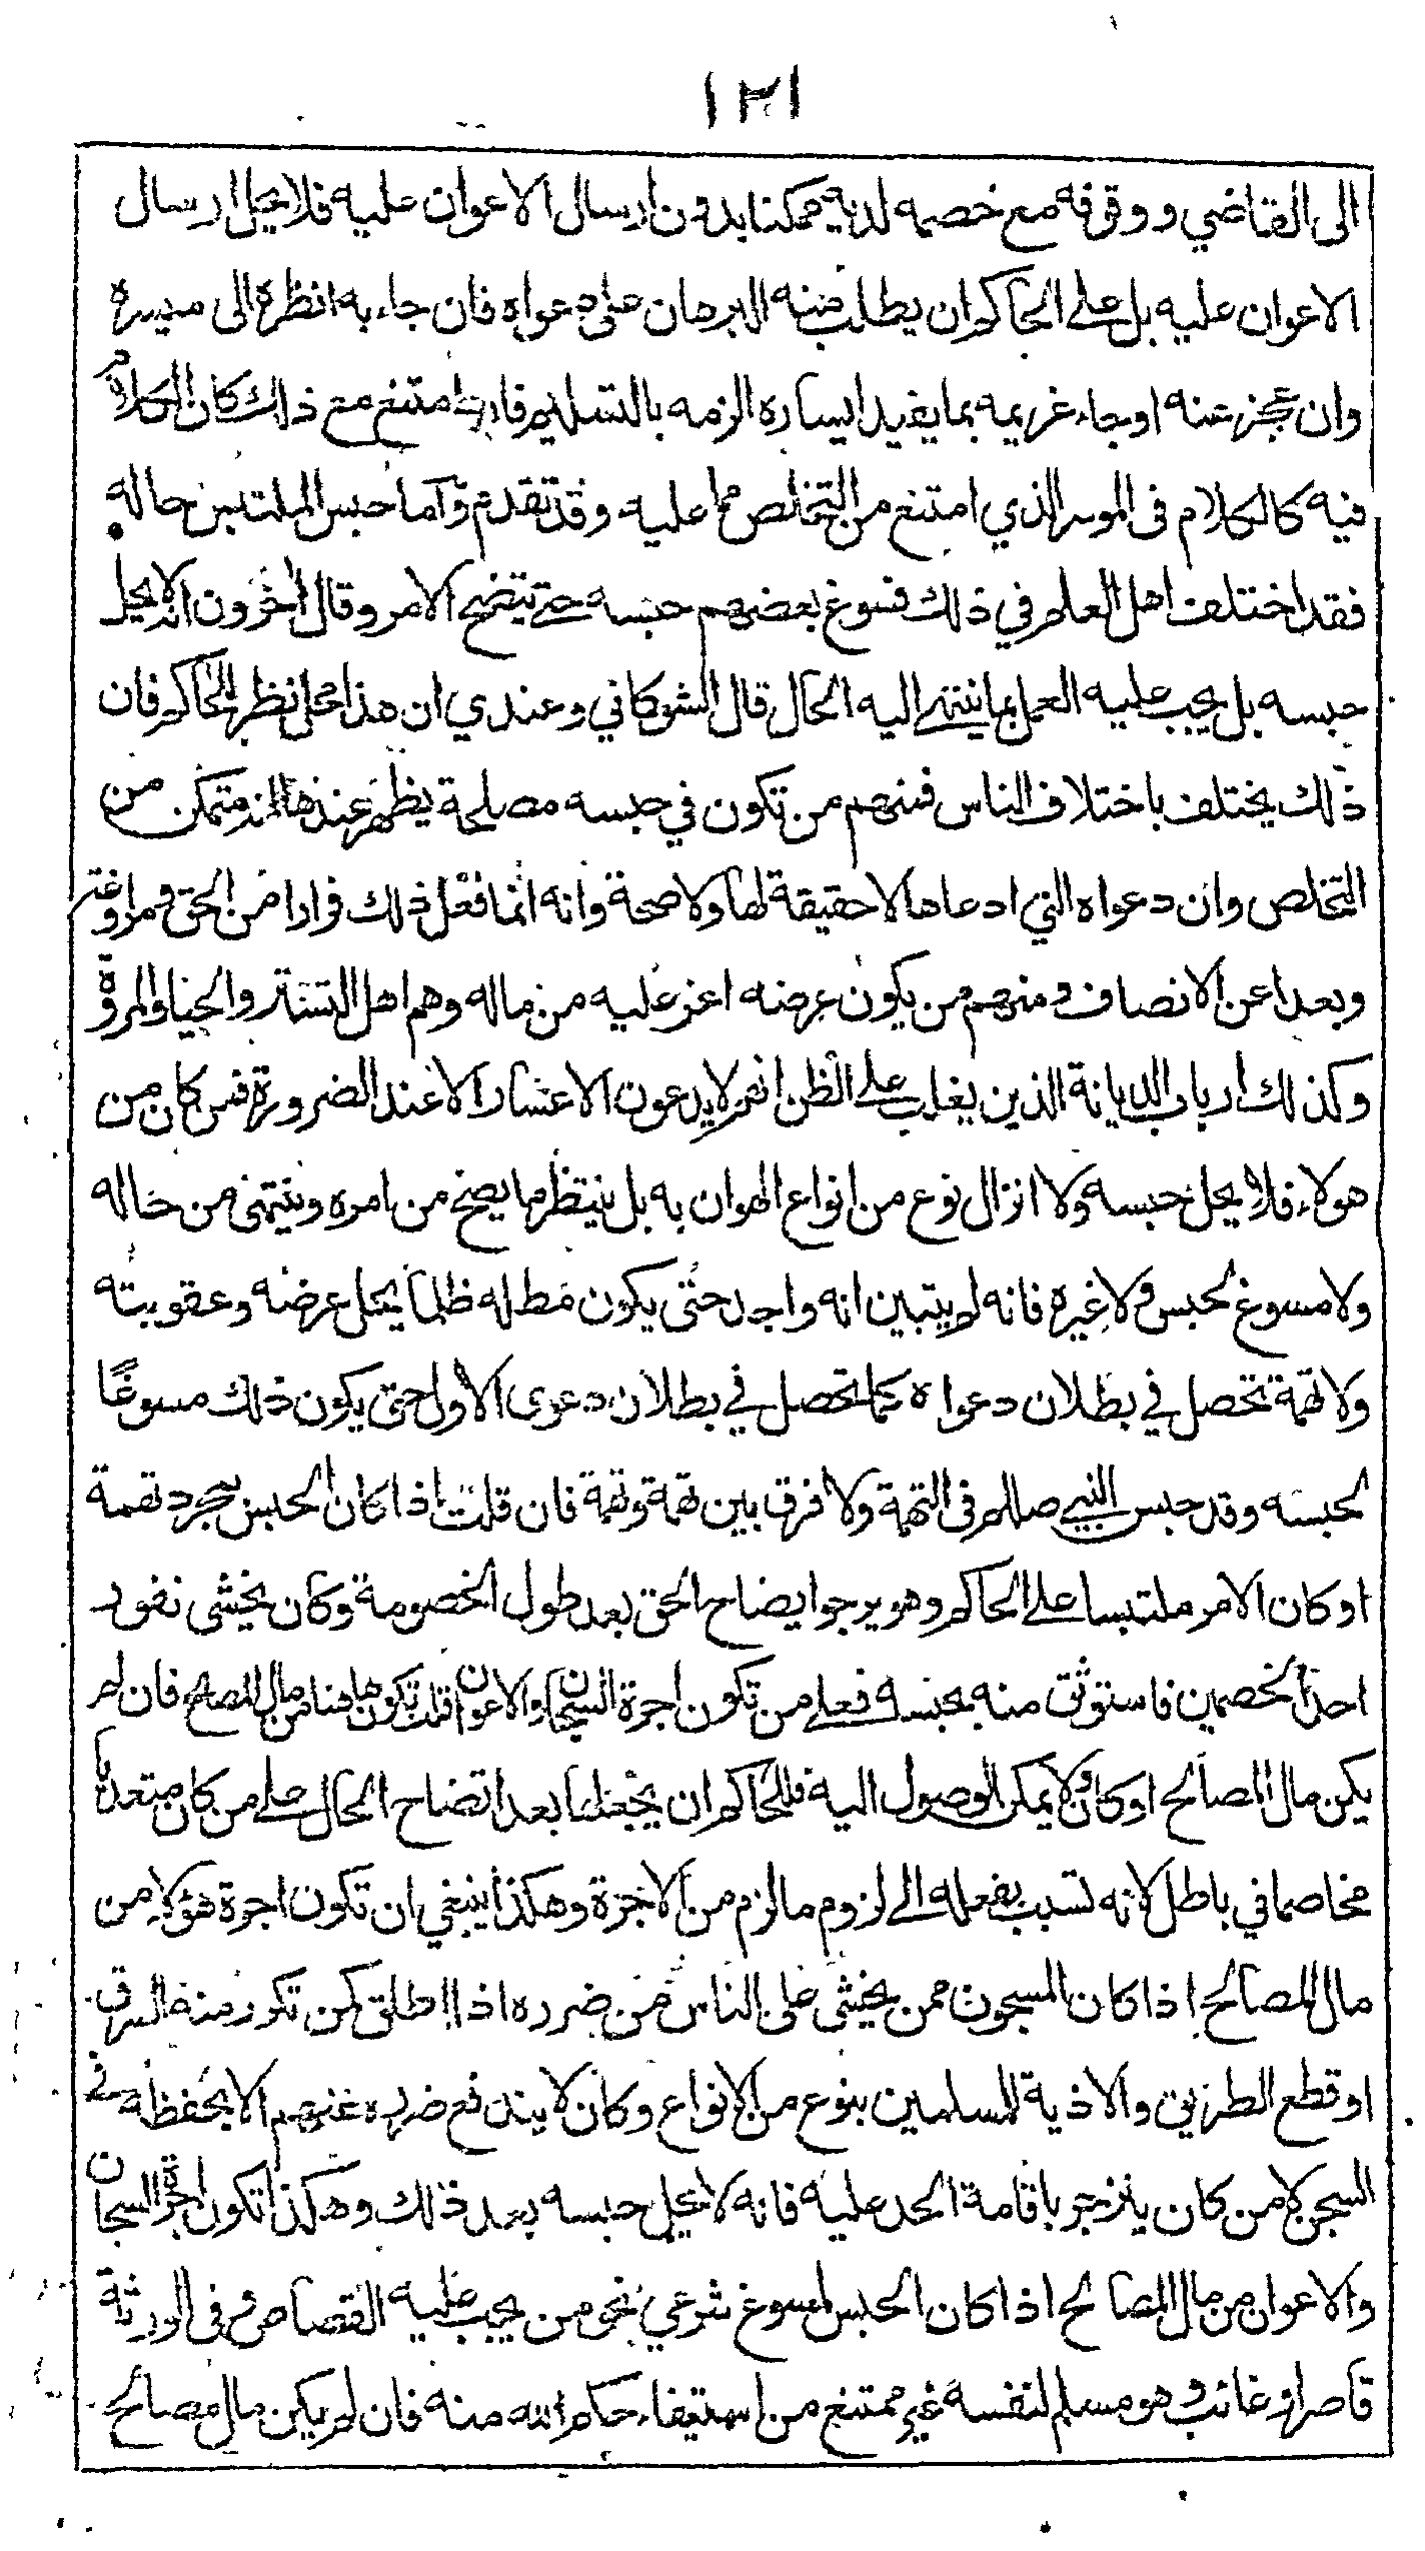 ١٢١
الى القاضي ووقوفه مع خصمه لديه ممكنا بدون ارسال الاعوان عليه فلا يحل ارسال
الاعوان عليه بل على الحاكم ان يطلب منه البرهان على دعواه فان جاء به انظره الى ميسرة
وان عجز عنه او جاء غريمه بما يفيد ايساره الزمه بالتسليم فاذا امتنع مع ذلك كان الكلام
فيه كالكلام فى الموسر الذي امتنع من التخلص مما عليه وقد تقدم وآما حبس الملتبس حاله
فقد اختلف اهل العلم في ذلك فسوغ بعضهم حبسه حتے يتضح الامر وقال اخرون انه لا يحل
حبسه بل يجب عليه العمل بما ينتهے اليه الحال قال الشوكاني وعندي ان هذا محل نظر الحاكم فان
ذلك يختلف باختلاف الناس فمنهم من تكون في حبسه مصلحة يظهر عندها انه متمكن من
التخلص وان دعواه التي ادعاها لا حقيقة لها ولا صحة وانه انما فعل ذلك فرارا من الحق ومراوغة
وبعدا عن الانصاف ومنهم من يكون عرضه اعز عليه من ماله وهم اهل التستر والحيا والمروة
وكذلك ارباب الديانة الذين يغلب على الظن انهم لا يدعون الاعسار الا عند الضرورة فمن كان من
هولاء فلا يحل حبسه ولا انزال نوع من انواع الهوان به بل ينتظر ما يصح من امره وينتهى من حاله
ولا مسوغ لحبس ولا غيره فانه لم يتبين انه واجد حتى يكون مطله ظلما يحل عرضه وعقوبته
ولا تهمة تحصل في بطلان دعواه كما تحصل في بطلان دعوى الاول حتى يكون ذلك مسوغًا
لحبسه وقد حبس النبي صللم فى التهمة ولا فرق بين تهمة وتهمة فان قلت اذا كان الحبس بمجرد تهمة
او كان الامر ملتبسا على الحاكم وهو يرجو ايضاح الحق بعد طول الخصومة وكان يخشى نفور
احد الخصمين فاستوثق منه بحبسه فعلى من تكون اجرة السجان والاعوان قلت تكون هاهنا من مال المصالح فان لم
يكن مال المصالح او كان ولا يمكن الوصول اليه فللحاكم ان يجعلها بعد اتضاح الحال على من كان متعديا
مخاصما في باطل لانه تسبب بفعله الى لزوم ما لزم من الاجرة وهكذا ينبغي ان تكون اجرة هؤلاء من
مال المصالح اذا كان المسجون ممن يخشى على الناس من ضرره اذا اطلق كمن تكرر منه السرق
او قطع الطريق والاذية للمسلمين بنوع من الانواع وكان لا يندفع ضرره عنهم الا بحفظه في
السجن لا من كان ينزجر باقامة الحد عليه فانه لا يحل حبسه بعد ذلك وهكذا تكون اجرة السجان
والاعوان من مال المصالح اذا كان الحبس لمسوغ شرعي نحو من يجب عليه القصاص وفى الورثة
قاصر او غائب وهو مسلم لنفسه غير ممتنع من استيفاء حكم الله منه فان لم يكن مال مصالح